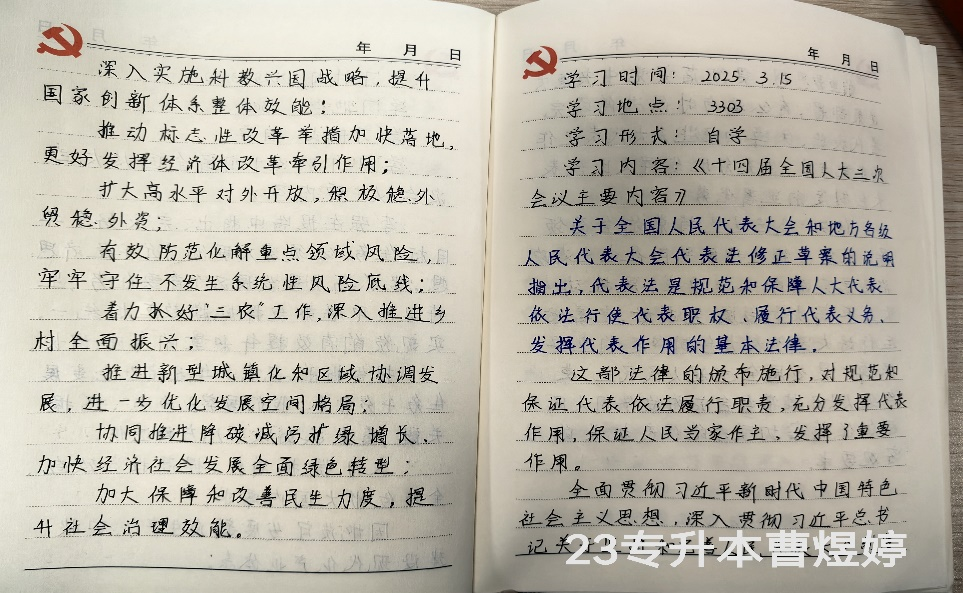 年 月 日
深入实施科教兴国战略,提升
国家创新体系整体效能;
推动标志性改革举措加快落地,
更好发挥经济体改革牵引作用;
扩大高水平对外开放,积极稳外
贸稳外资;
有效防范化解重点领域风险,
牢牢守住不发生系统性风险底线;
着力抓好"三农"工作,深入推进乡
村全面振兴;
推进新型城镇化和区域协调发
展,进一步优化发展空间格局;
协同推进降碳减污扩绿增长,
加快经济社会发展全面绿色转型;
加大保障和改善民生力度,提
升社会治理效能。
年 月 日
学习时间: 2025.3.15
学习地点: 3303
学习形式: 自学
学习内容:《十四届全国人大三次
会议主要内容》
关于全国人民代表大会和地方各级
人民代表大会代表法修正草案的说明
指出,代表法是规范和保障人大代表
依法行使代表职权、履行代表义务、
发挥代表作用的基本法律。
这部法律的颁布施行,对规范和
保证代表依法履行职责,充分发挥代表
作用,保证人民当家作主,发挥了重要
作用。
全面贯彻习近平新时代中国特色
社会主义思想,深入贯彻习近平总书
记关于
23专升本曹煜婷